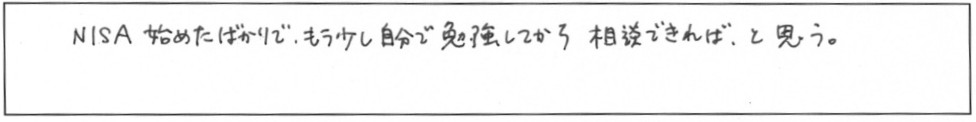 NISA 始めたばかりで、もう少し自分で勉強してから 相談できれば、と思う。